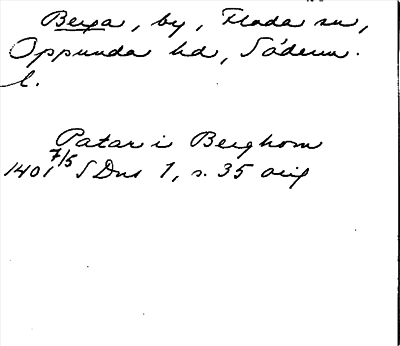 Berga, by, Floda sn,
Oppunda hd, Söderm.
l.
Petar i Berghom
1401 7/5 SDns 1, s. 35 orig